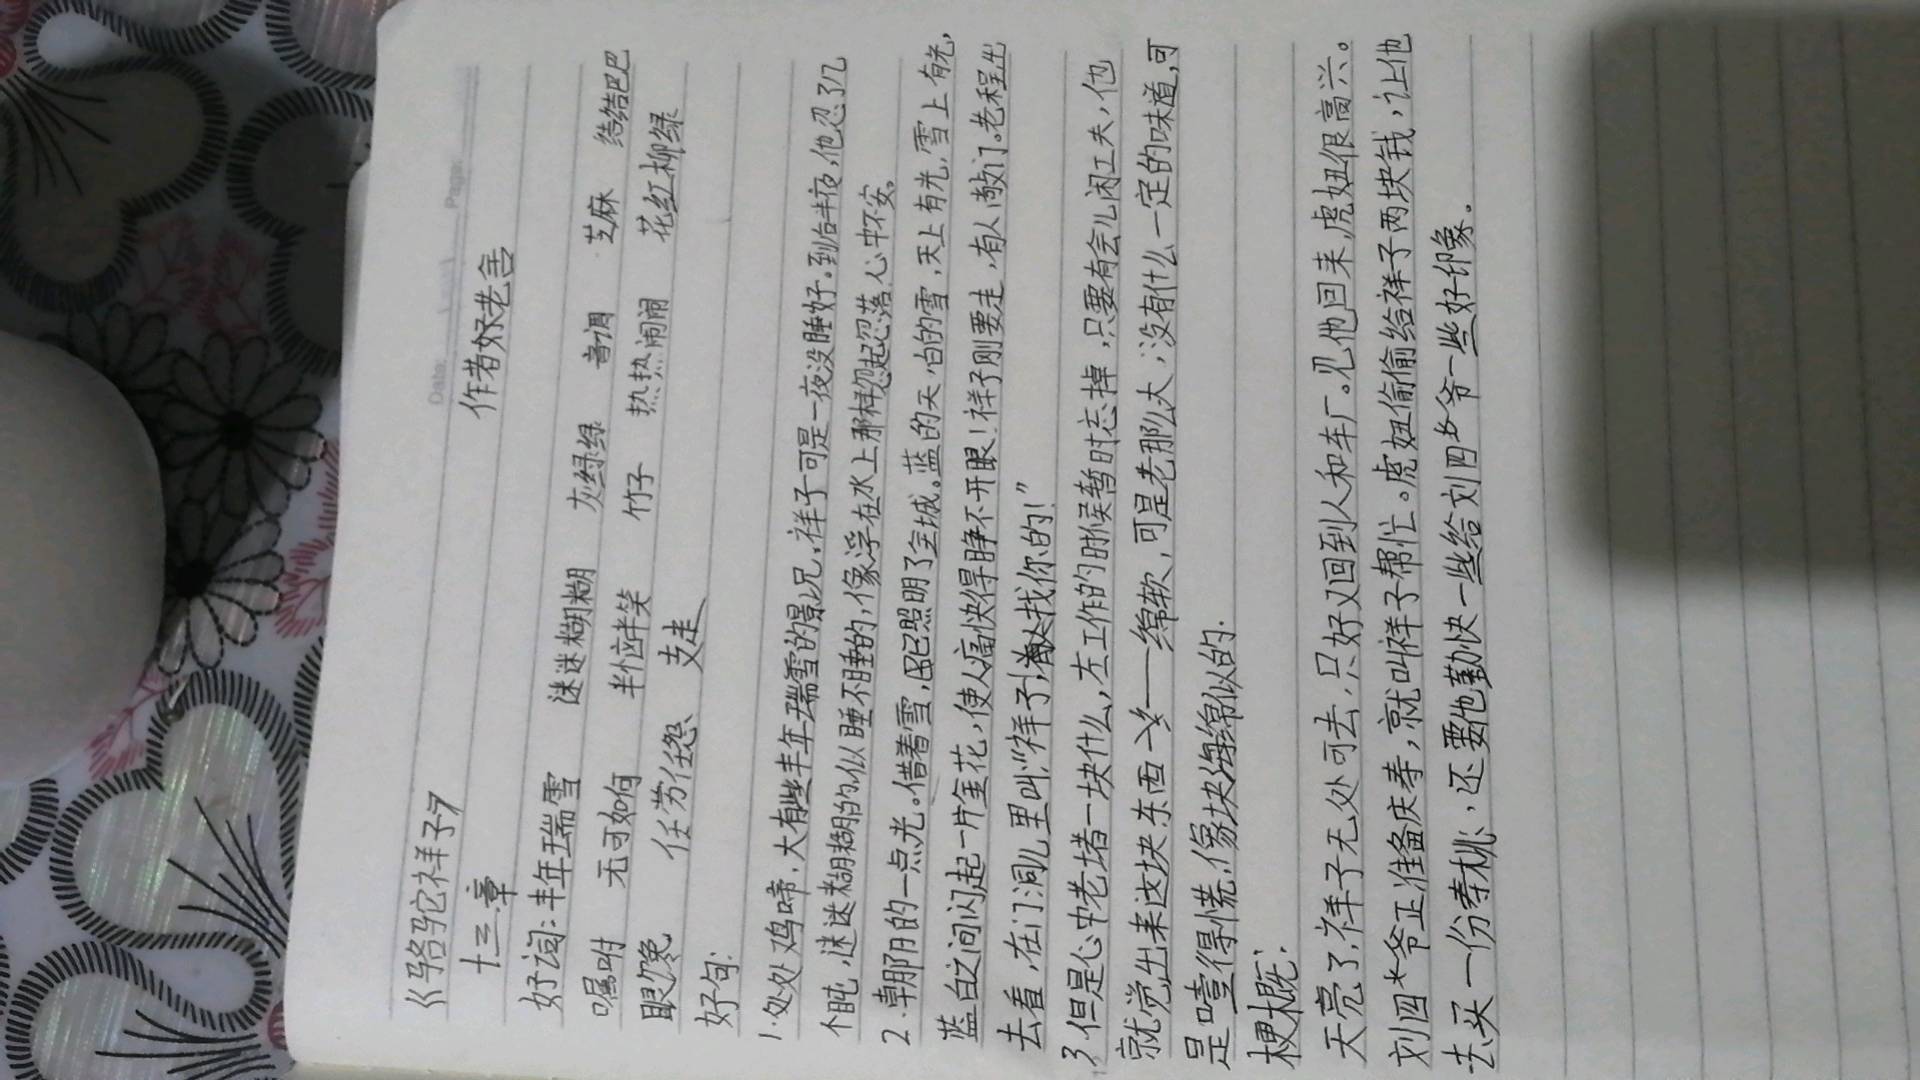 《骆驼祥子》
作者老舍
十三章
好词:丰年瑞雪 迷迷糊糊 灰绿绿 音调 芝麻 结结巴巴
嘱咐 无可如何 半恼半笑 竹子 热热闹闹 花红柳绿
眼馋 任劳任怨 支走
好句:
1.处处鸡啼,大有些丰年瑞雪的景况,祥子可是一夜没睡好。到后半夜,他忍了几
个盹,迷迷糊糊的,似睡不睡的,像浮在水上那样忽起忽落,心中不安。
2.朝阳的一点光。借着雪,已照明了全城。蓝的天,白的雪,天上有光,雪上有光,
蓝白之间闪起一片金花,使人痛快得睁不开眼!祥子刚要走,有人敲门。老程出
去看,在门洞儿里叫:“祥子,找你的!”
3.但是心中老堵着一块什么,在工作的时候暂时忘掉,只要有会儿闲工夫,他
就觉出来这块东西——绵软,可是老那么大;没有什么一定的味道,可
是噎得慌,像块海绵似的.
梗概:
天亮了,祥子无处可去,只好又回到人和车厂。见他回来,虎妞很高兴。
刘四爷正准备庆寿,就叫祥子帮忙。虎妞偷偷给祥子两块钱,让他
去买一份寿桃,还要他勤快一些给刘四爷一些好印象。
Date:
Page: